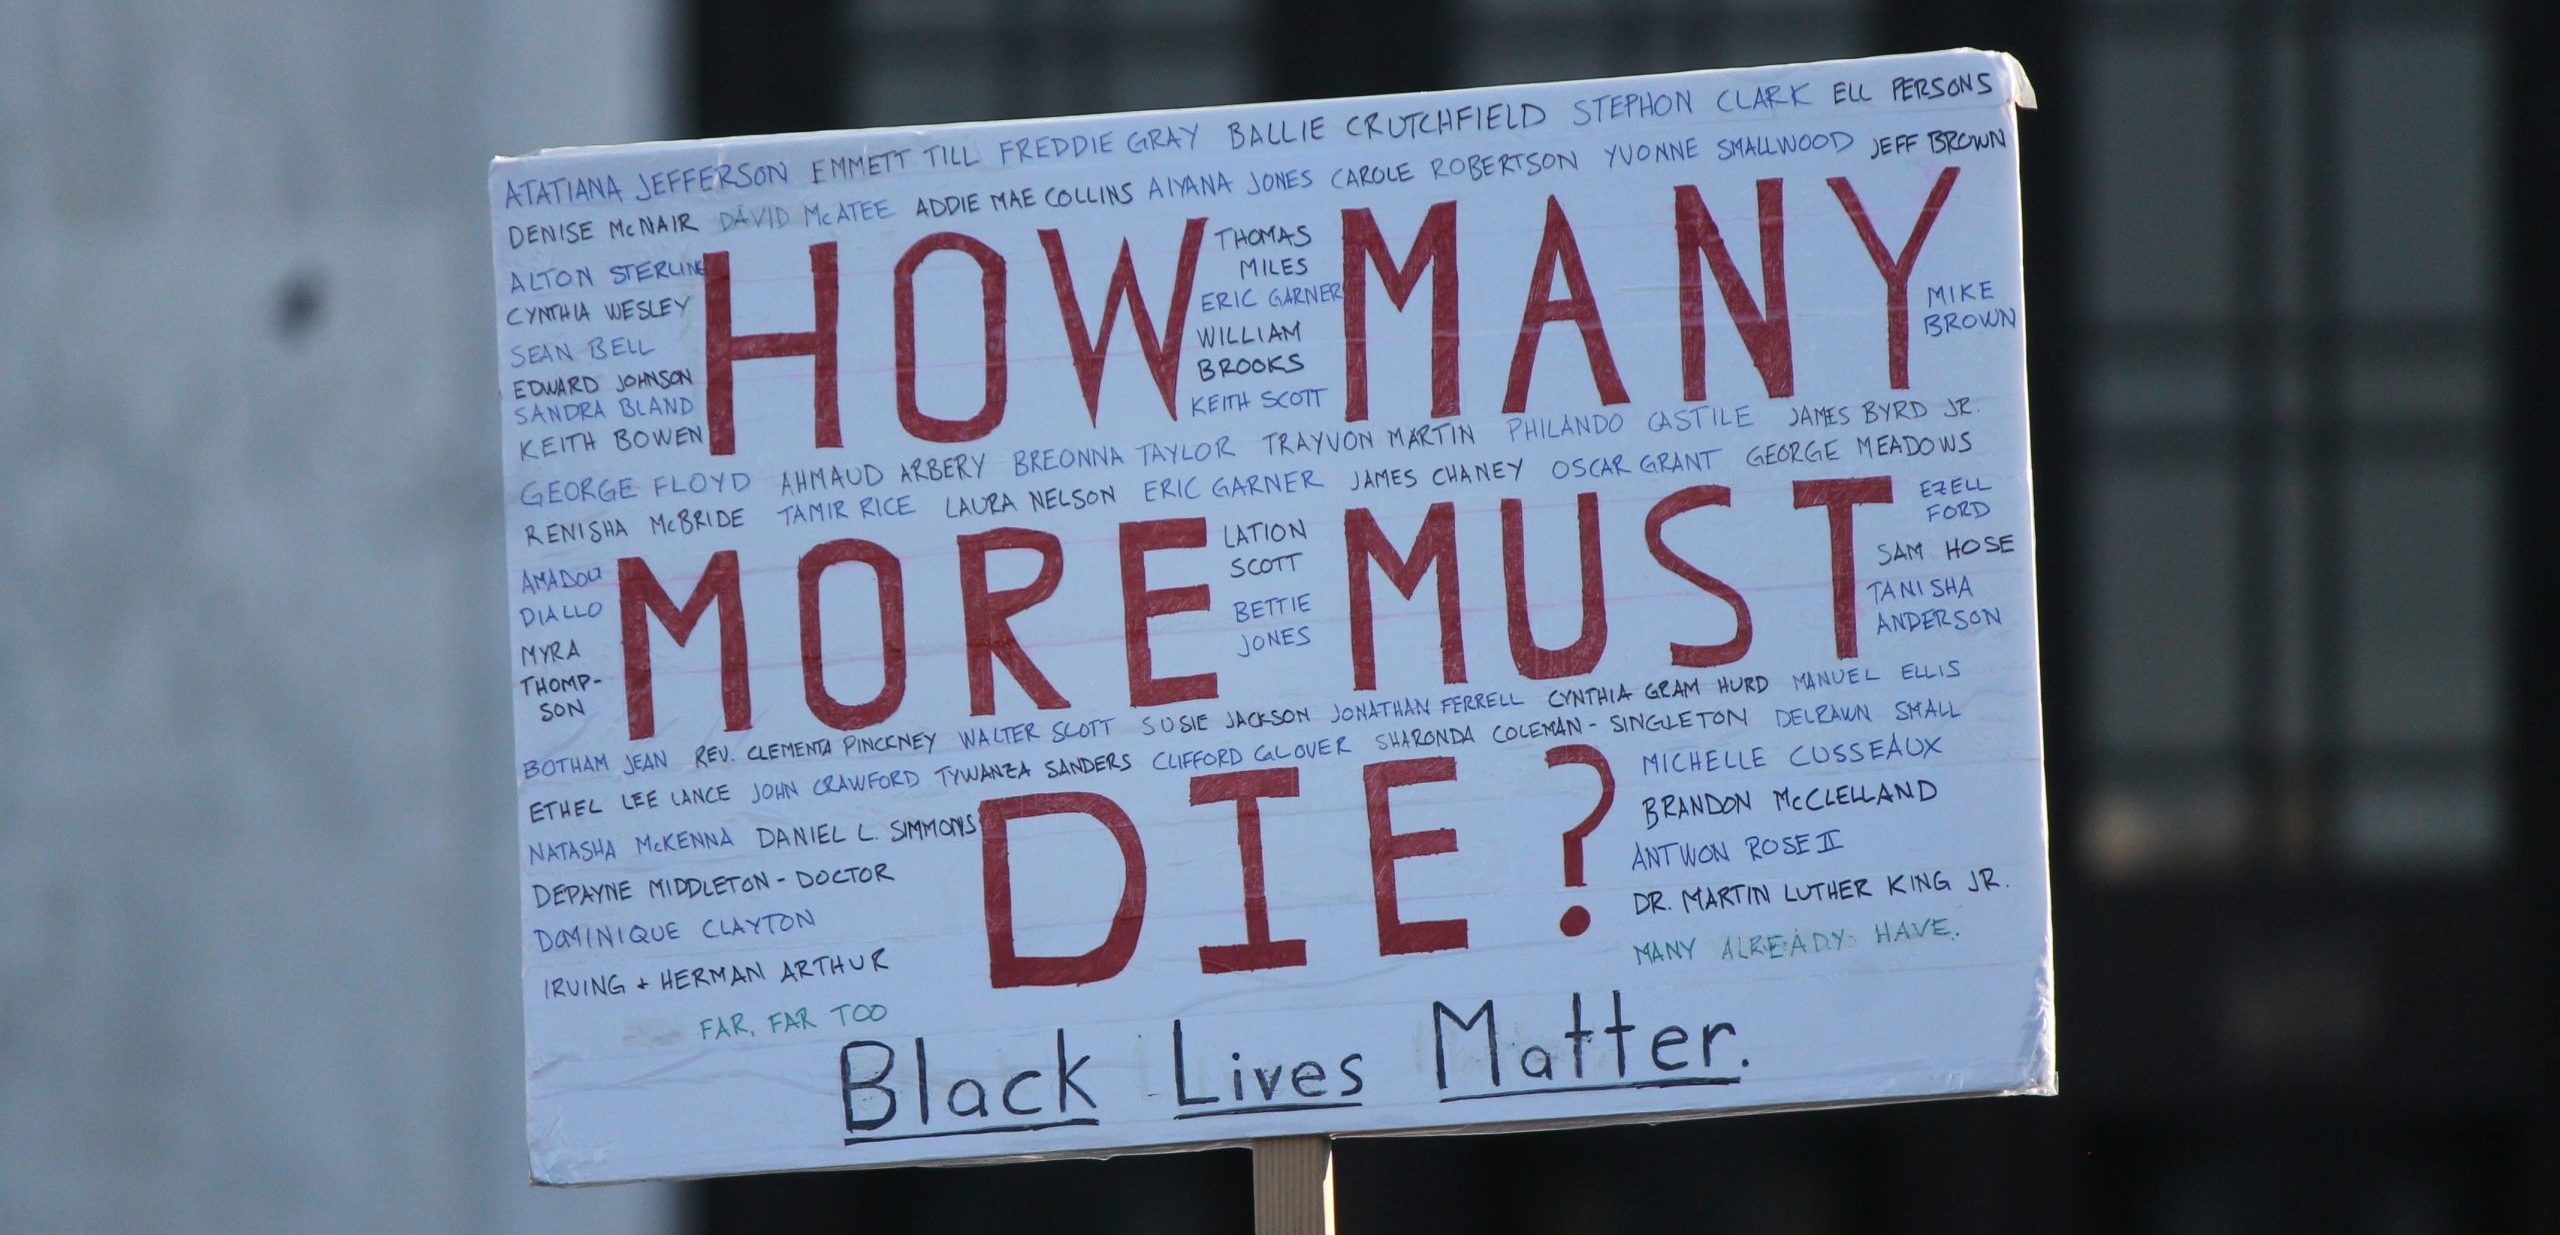 ATATIANA JEFFERSON EMMETT TILL FREDDIE GRAY BALLIE CRUTCHFIELD STEPHON CLARK ELL PERSONS
DENISE McNAIR DAVID McATEE ADDIE MAE COLLINS AIYANA JONES CAROLE ROBERTSON YVONNE SMALLWOOD JEFF BROWN
ALTON STERLING
CYNTHIA WESLEY
SEAN BELL
EDWARD JOHNSON
SANDRA BLAND
KEITH BOWEN
HOW MANY
THOMAS
MILES
ERIC GARNER
WILLIAM
BROOKS
KEITH SCOTT
MIKE
BROWN
GEORGE FLOYD AHMAUD ARBERY BREONNA TAYLOR TRAYVON MARTIN PHILANDO CASTILE JAMES BYRD JR.
RENISHA McBRIDE TAMIR RICE LAURA NELSON ERIC GARNER JAMES CHANEY OSCAR GRANT GEORGE MEADOWS
AMADOU
DIALLO
MYRA
THOMP-
SON
MORE MUST
LATION
SCOTT
BETTIE
JONES
EZELL
FORD
SAM HOSE
TANISHA
ANDERSON
BOTHAM JEAN REV. CLEMENTA PINCKNEY WALTER SCOTT SUSIE JACKSON JONATHAN FERRELL CYNTHIA GRAM HURD MANUEL ELLIS
ETHEL LEE LANCE JOHN CRAWFORD TYWANZA SANDERS CLIFFORD GLOVER SHARONDA COLEMAN-SINGLETON DELRAWN SMALL
NATASHA McKENNA DANIEL L. SIMMONS
DEPAYNE MIDDLETON-DOCTOR
DOMINIQUE CLAYTON
IRVING + HERMAN ARTHUR
FAR, FAR TOO
DIE?
MICHELLE CUSSEAUX
BRANDON McCLELLAND
ANTWON ROSE II
DR. MARTIN LUTHER KING JR.
MANY ALREADY HAVE.
Black Lives Matter.